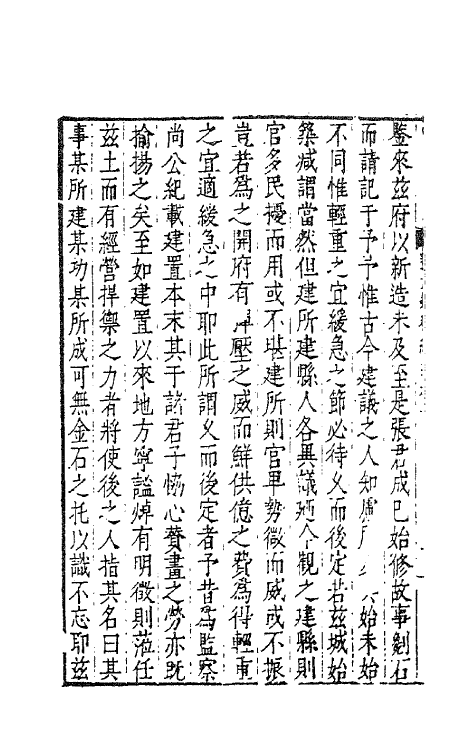 鑒來兹府以新造未及至是張君成巳始修故事劉石
而請記于予予惟古今建議之人知慮始未始
不同惟輕重之宜緩急之節必待乆而後定若兹城始
築咸謂當然但建所建縣人各異議廼今觀之建縣則
官多民擾而用或不堪建所則官卑勢微而威或不振
豈若爲之開府有壓之威而鮮供億之費爲得輕重
之宜適緩急之中耶此所謂乆而後定者予昔爲監察
尚公紀載建置本末其于諸君子恊心賛畫之勞亦既
揄揚之矣至如建置以來地方寧謐焯有明徵則蒞任
兹土而有經營捍禦之力者將使後之人指其名曰其
事某所建某功某所成可無金石之托以識不忘耶兹